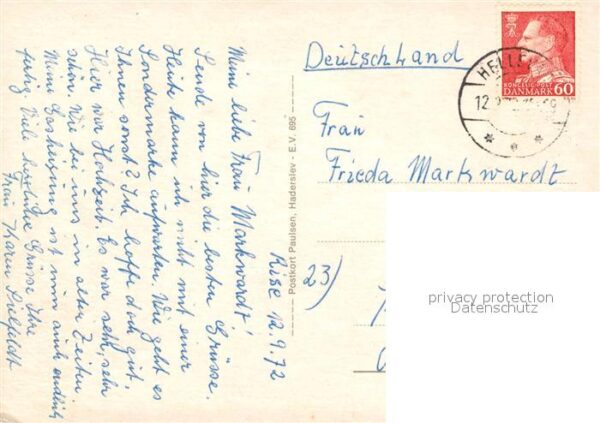 Rise 12.9.72
Meine liebe Frau Markwardt!
Sende von hier die besten Grüsse.
Heute kann ich nicht mit einer
Sondermarke aufwarten. Wie geht es
Ihnen sonst? Ich hoffe doch gut.
Hier war Hochzeit. Es war sehr, sehr
schön. Wie bei uns in alten Zeiten.
Mein ist nun auch endlich
fertig. Viele herzliche Grüsse Ihre
Frau Karen
Postkort Paulsen, Haderslev - E.V. 695
Deutschland
KONGELIG POST
DANMARK 60
HELLE
12.9.72
Frau
Frieda Markwardt
23)
privacy protection
Datenschutz